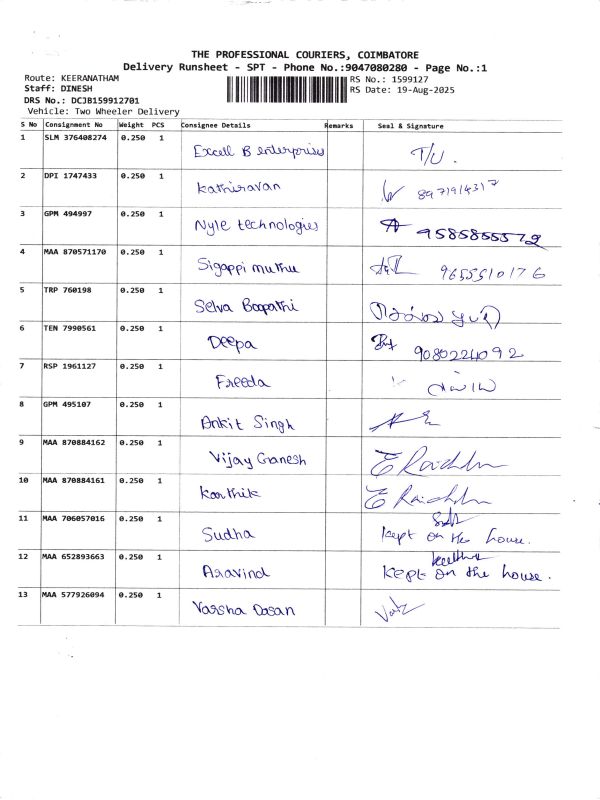 THE PROFESSIONAL COURIERS, COIMBATORE
Delivery Runsheet - SPT - Phone No.:9047080280 - Page No.:1
Route: KEERANATHAM
Staff: DINESH
DRS No.: DCJB159912701
Vehicle: Two Wheeler Delivery
RS No.: 1599127
RS Date: 19-Aug-2025
S No Consignment No Weight PCS Consignee Details Remarks Seal & Signature
1 SLM 376408274 0.250 1 Excell B enterprises T/U.
2 DPI 1747433 0.250 1 Kathiravan 8971914317
3 GPM 494997 0.250 1 Nyle technologies 9585855572
4 MAA 870571170 0.250 1 Sigappi muthu 9655510176
5 TRP 760198 0.250 1 Selva Boopathi
6 TEN 7990561 0.250 1 Deepa 9080224092
7 RSP 1961127 0.250 1 Freeda
8 GPM 495107 0.250 1 Ankit Singh
9 MAA 870884162 0.250 1 Vijay Ganesh
10 MAA 870884161 0.250 1 Karthik
11 MAA 706057016 0.250 1 Sudha kept on the house.
12 MAA 652893663 0.250 1 Aravind kept on the house.
13 MAA 577926094 0.250 1 Varsha Dasan